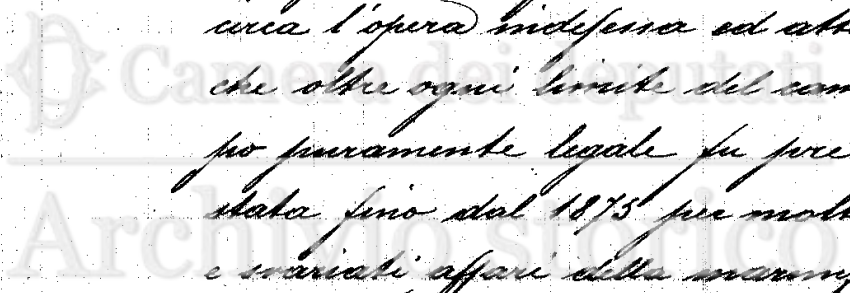 circa l'opera indefessa ed att
che oltre ogni limite del cam
po puramente legale fu pre
stata fino dal 1875 per molt
e svariati affari della
Camera dei Deputati
Archivio storico